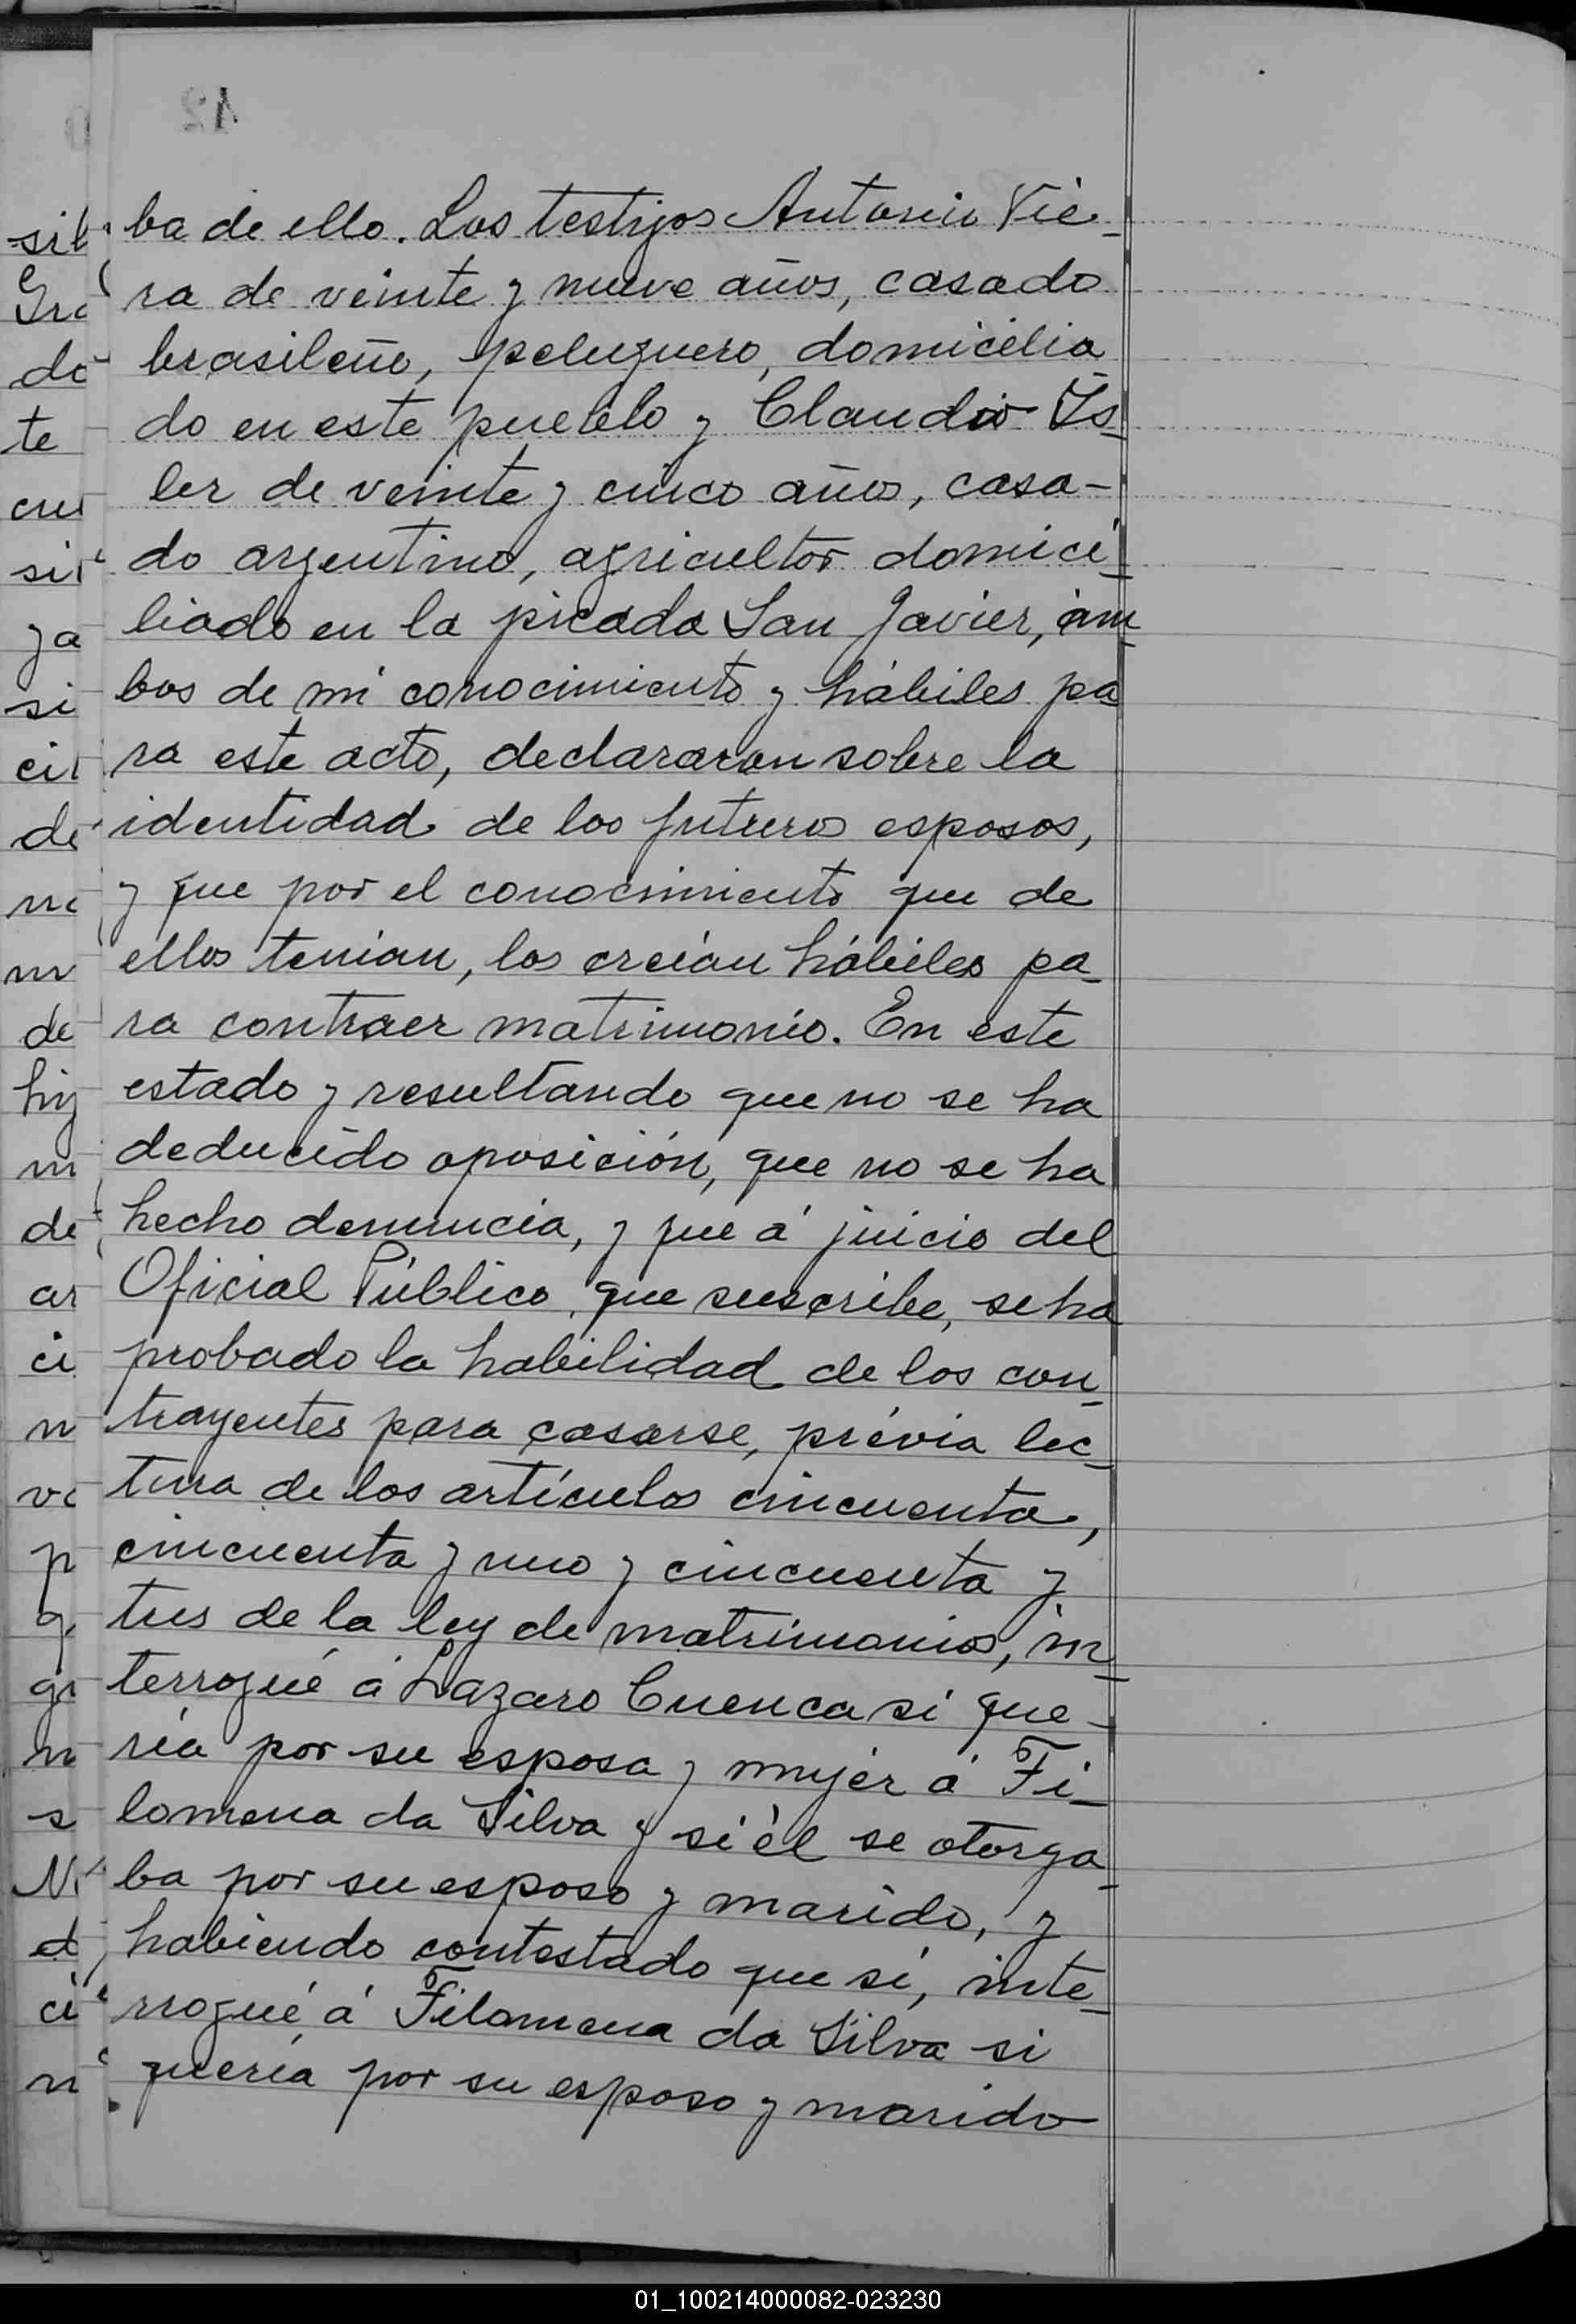 ba de ello. Los testigos Antonio Vie-
ra de veinte y nueve años, casado
brasileño, peluquero, domicilia
do en este pueblo y Claudio Is-
ler de veinte y cinco años, casa-
do argentino, agricultor domici-
liado en la picada San Javier, am-
bos de mi conocimiento y hábiles pa-
ra este acto, declararon sobre la
identidad de los futuros esposos,
y que por el conocimiento que de
ellos tenían, los creían hábiles pa-
ra contraer matrimonio. En este
estado y resultando que no se ha
deducido oposición, que no se ha
hecho denuncia, y que á juicio del
Oficial Público, que suscribe, se ha
probado la habilidad de los con-
trayentes para casarse, prévia lec-
tura de los artículos cincuenta,
cincuenta y uno y cincuenta y
tres de la ley de matrimonios, in-
terrogué á Lazaro Cuenca si que-
ría por su esposa y mujer á Fi-
lomena da Silva y si él se otorga-
ba por su esposo y marido, y
habiendo contestado que sí, inte-
rrogué á Filomena da Silva si
quería por su esposo y marido
01_100214000082-023230